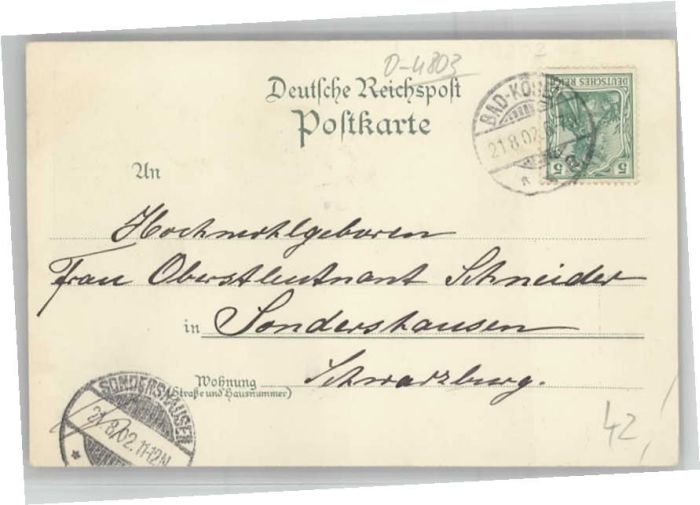 D-4803
Deutsche Reichspost
Postkarte
BAD-KÖSEN
21.8.02
DEUTSCHES REICH
5 5
An
Hochwohlgeboren
Frau Oberstleutnant Schneider
in Sondershausen
Wohnung Schwarzburg.
(Straße und Hausnummer)
SONDERSHAUSEN
21/8/02.11-12N
42,